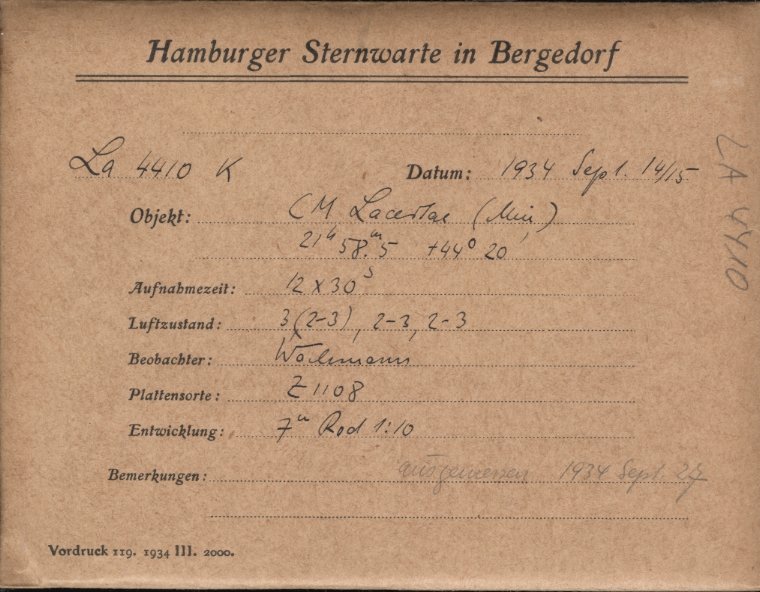 Hamburger Sternwarte in Bergedorf
La 4410 K Datum: 1934 Sept. 14/15
LA 4410
Objekt: CM Lacertae (Min)
21h 58.m5 +44° 20'
Aufnahmezeit: 12 x 30s
Luftzustand: 3(2-3), 2-3, 2-3
Beobachter: Wachmann
Plattensorte: Z 1108
Entwicklung: 7m Rod 1:10
Bemerkungen: ausgemessen 1934 Sept. 27
Vordruck 119. 1934 III. 2000.